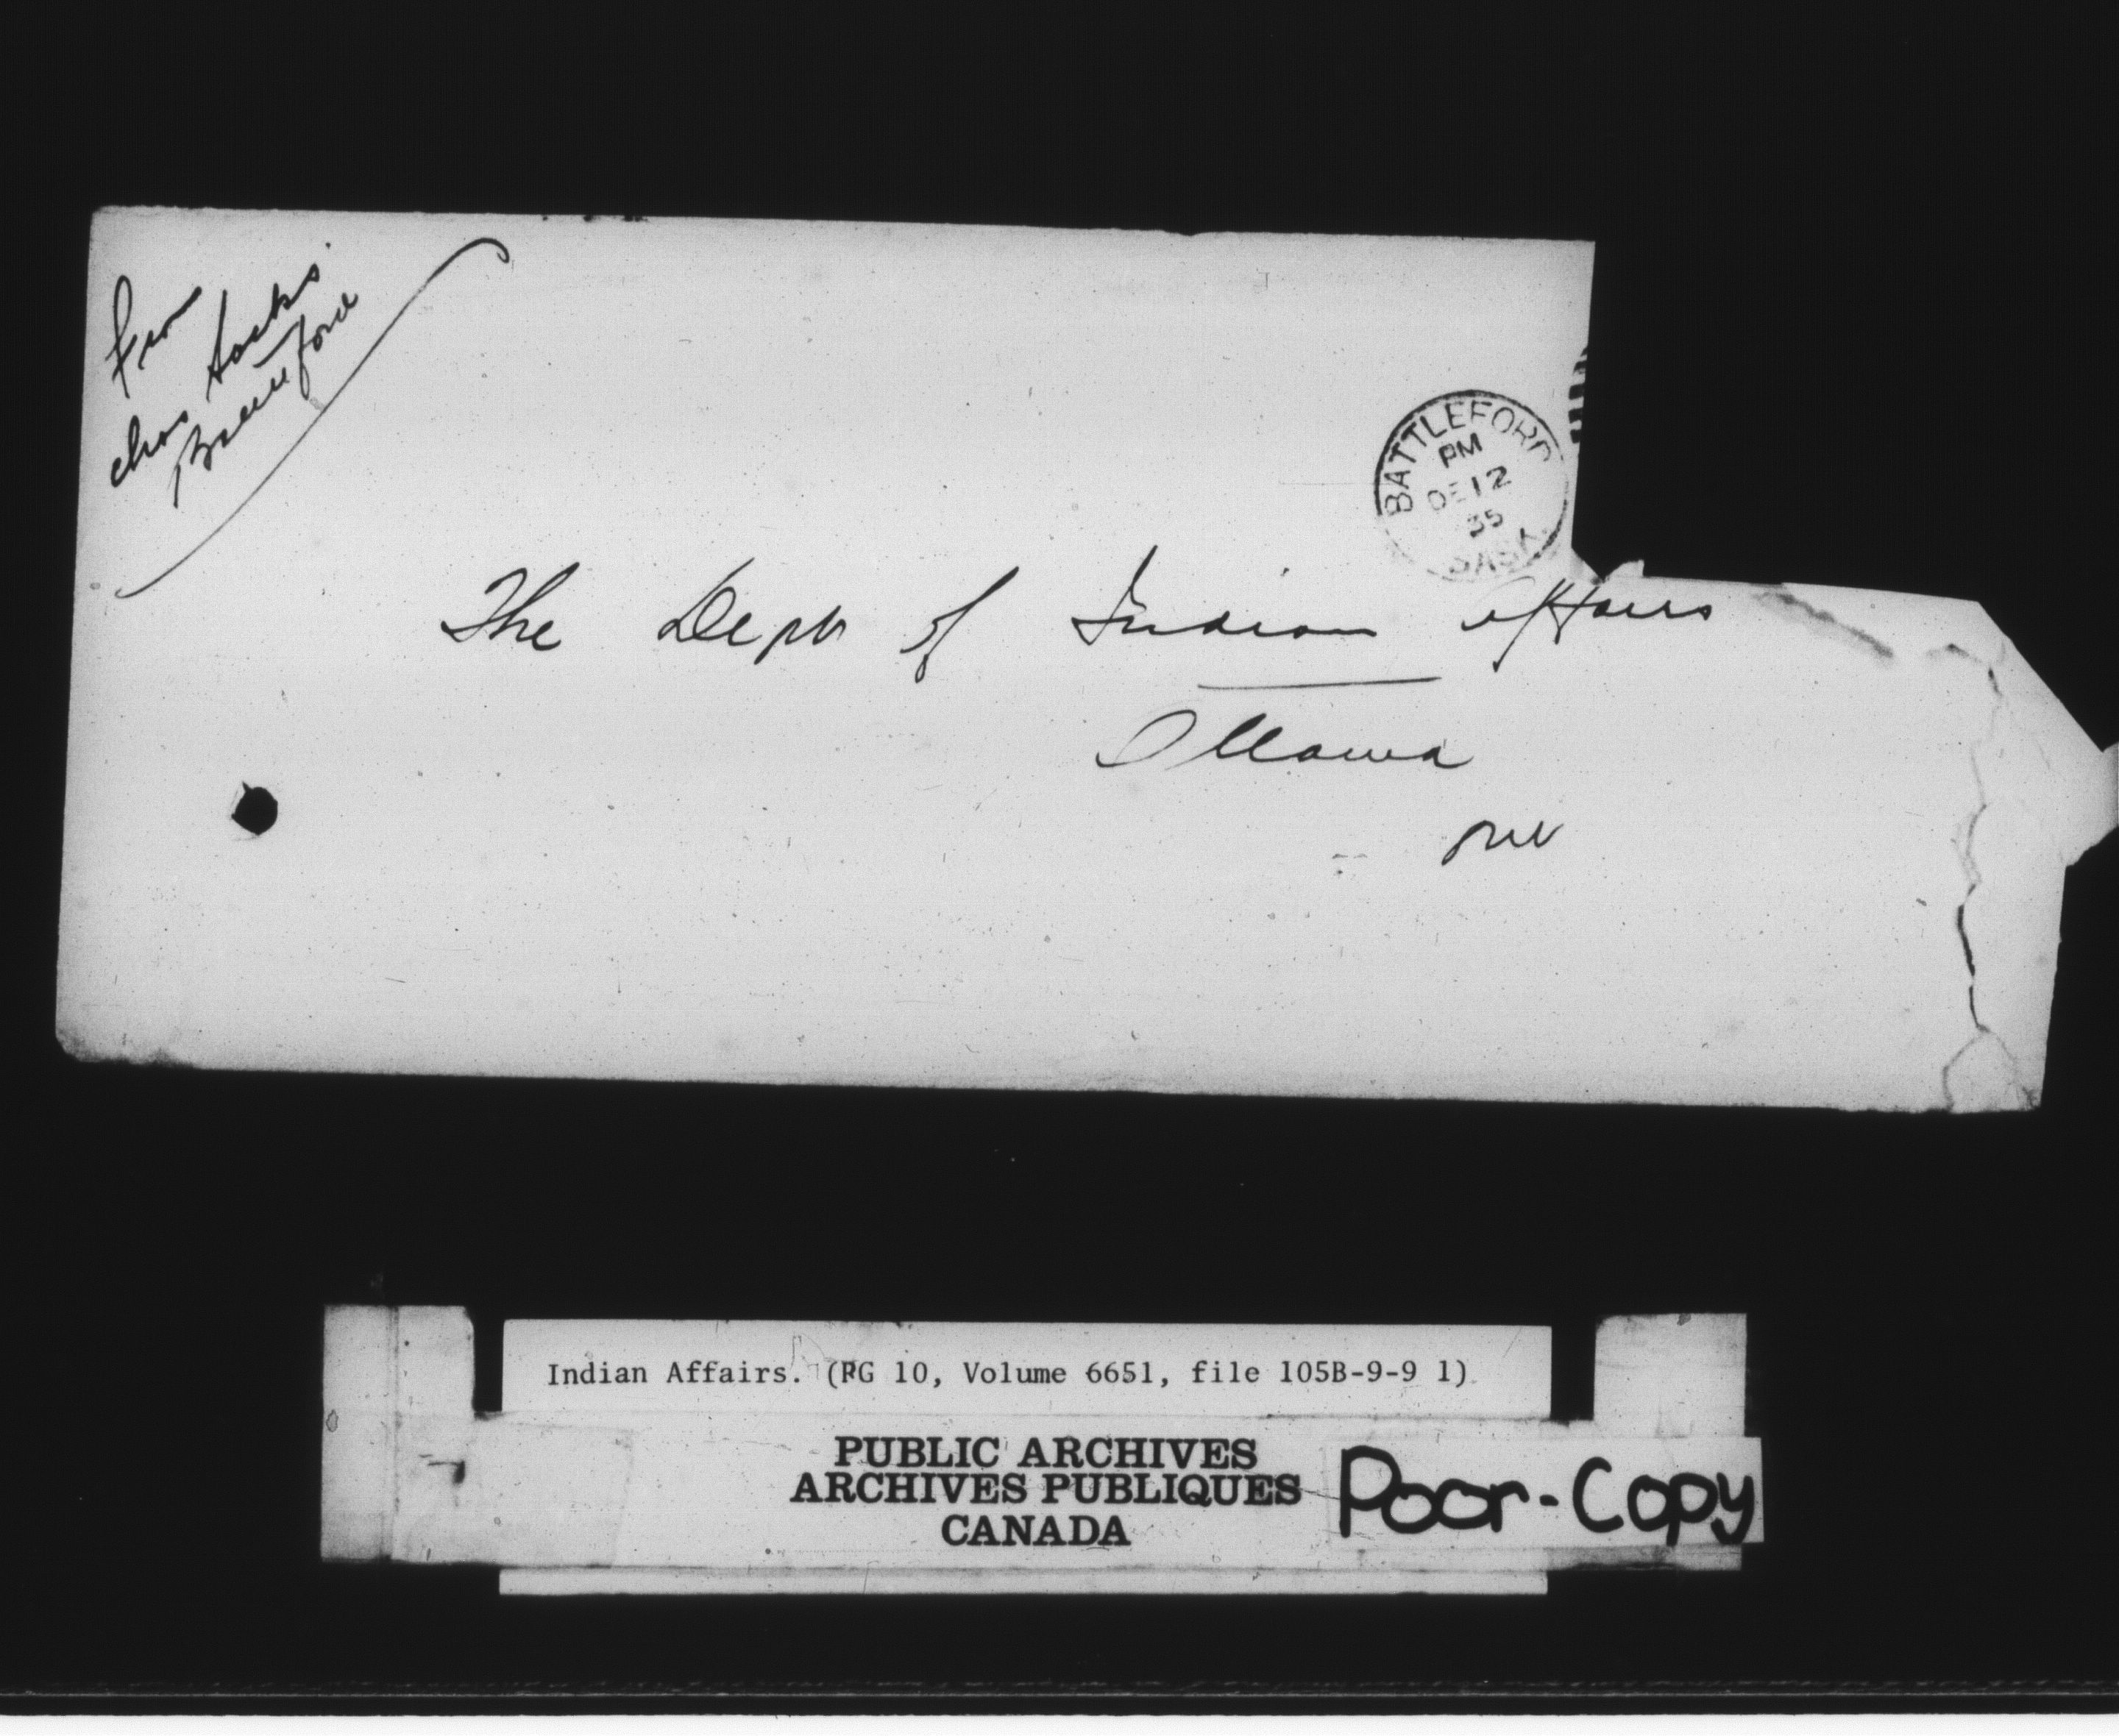 From
Chas
The Dept of Indian Affairs
Ottawa
Ont
BATTLEFORD
PM
DE 12
35
SASK
Indian Affairs. (RG 10, Volume 6651, file 105B-9-9 1)
PUBLIC ARCHIVES
ARCHIVES PUBLIQUES
CANADA
Poor-Copy